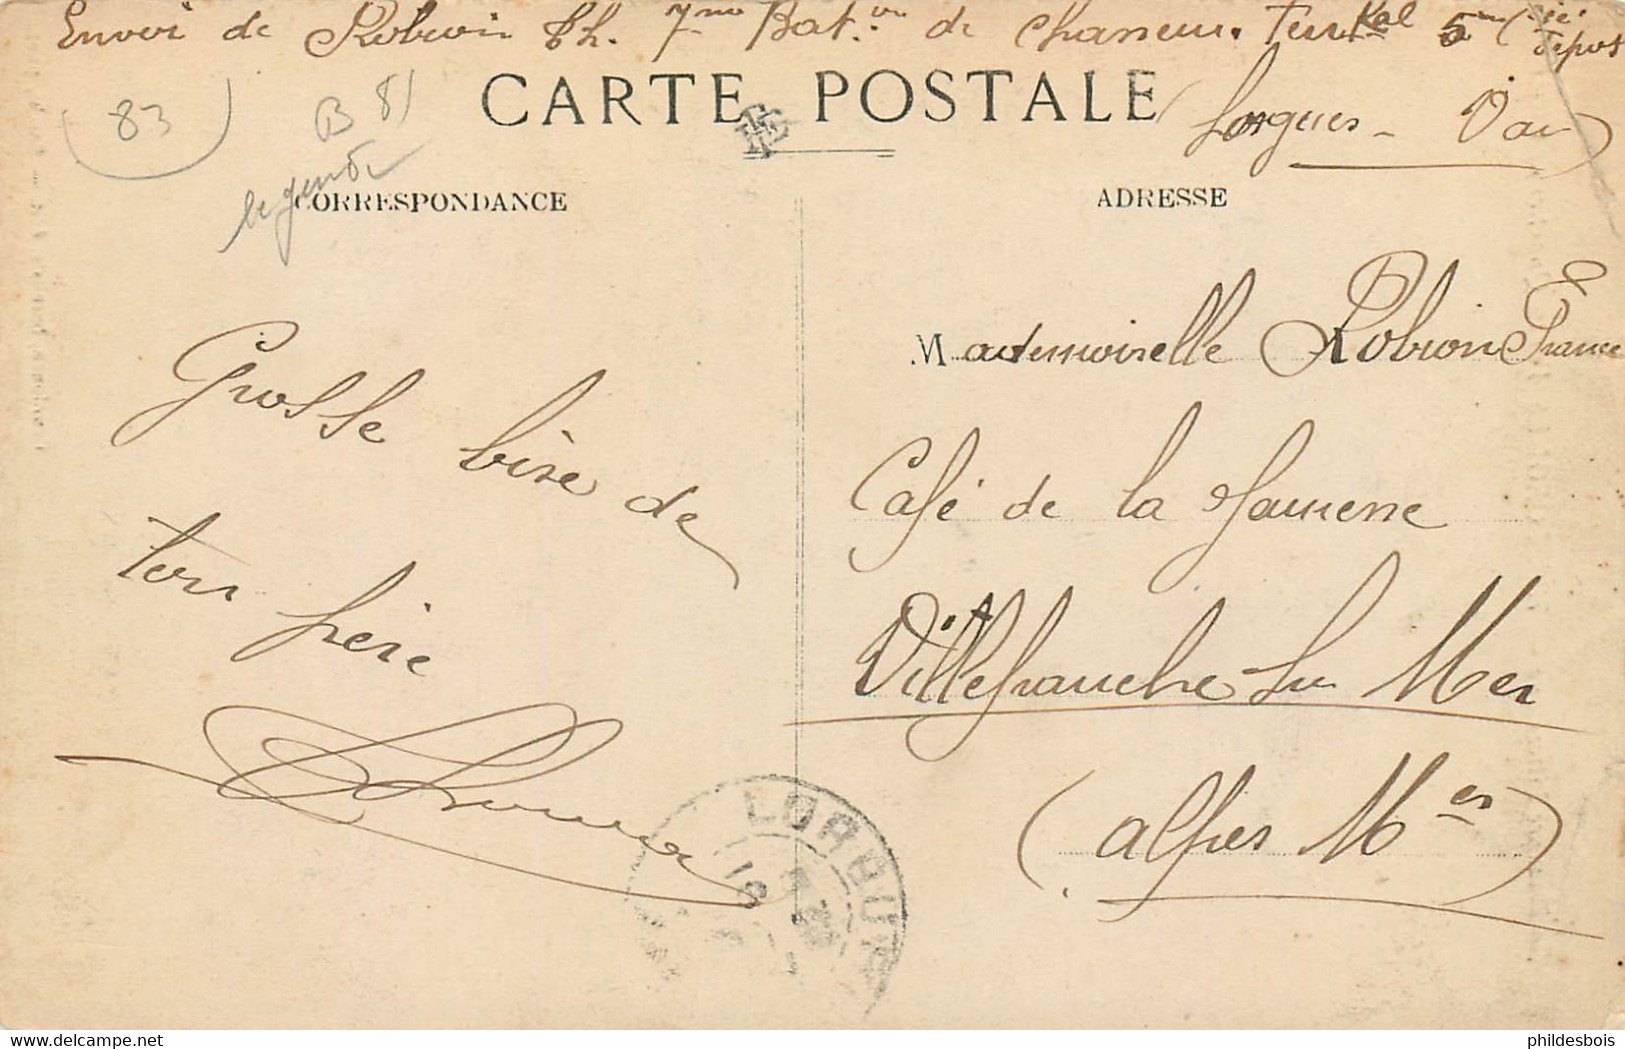 Envoi de Robion Th. 7me Bat.on de Chasseurs Territal 5me Cie
dépôt
CARTE POSTALE
Lorgues - Var
83
B 81
legende
CORRESPONDANCE
ADRESSE
Mademoiselle Robion France
Grosse bise de
ton frère
Café de la
Villefranche sur Mer
(Alpes Mes)
LORGUES
phildesbois
www.delcampe.net